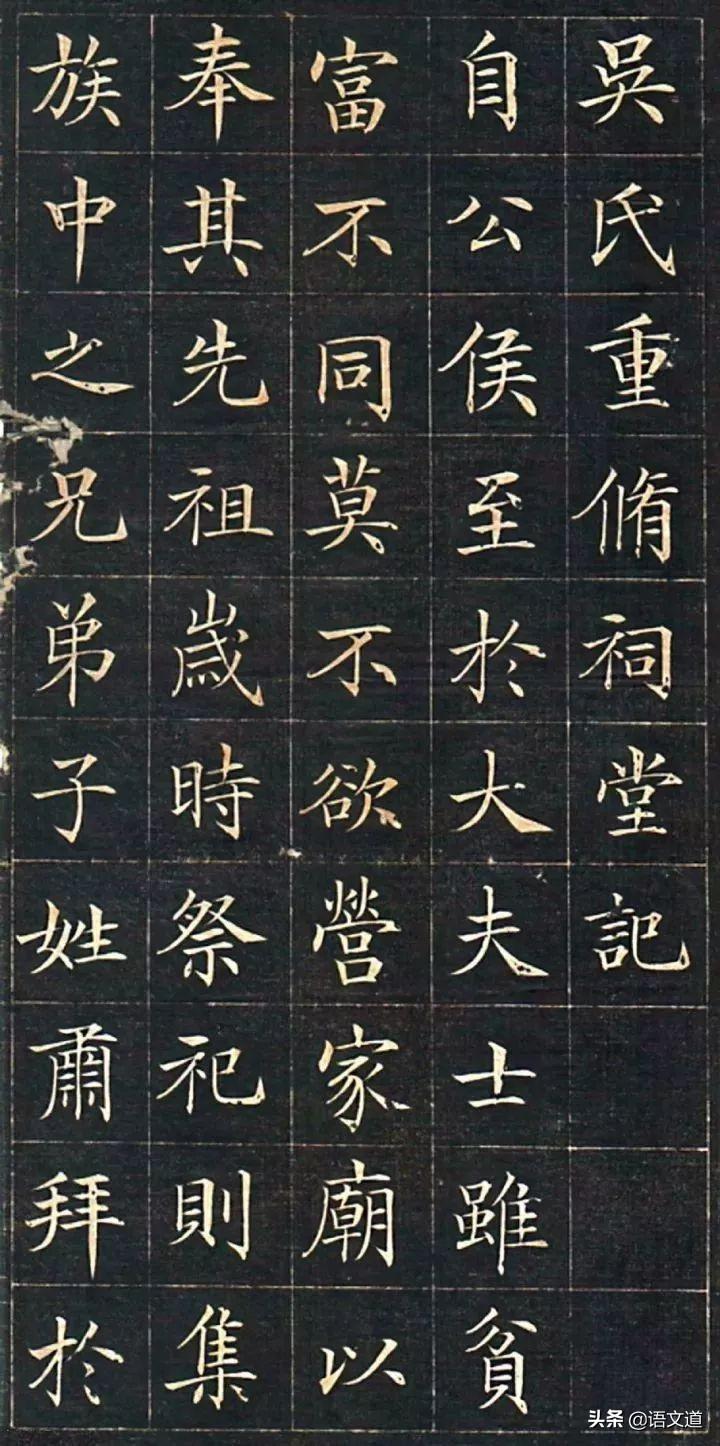 吳氏重脩祠堂記
自公侯至於大夫士雖貧
富不同莫不欲營家廟以
奉其先祖歲時祭祀則集
族中之兄弟子姓肅拜於
头条 @语文道